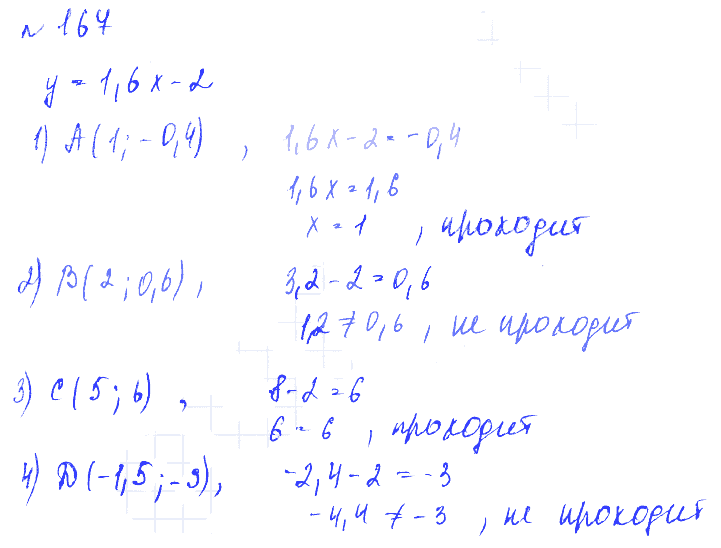 № 167
y = 1,6x - 2
1) A(1; -0,4) , 1,6x - 2 = -0,4
1,6x = 1,6
x = 1 , проходит
2) B(2; 0,6) , 3,2 - 2 = 0,6
1,2 ≠ 0,6 , не проходит
3) C(5; 6) , 8 - 2 = 6
6 = 6 , проходит
4) D(-1,5; -3) , -2,4 - 2 = -3
-4,4 ≠ -3 , не проходит